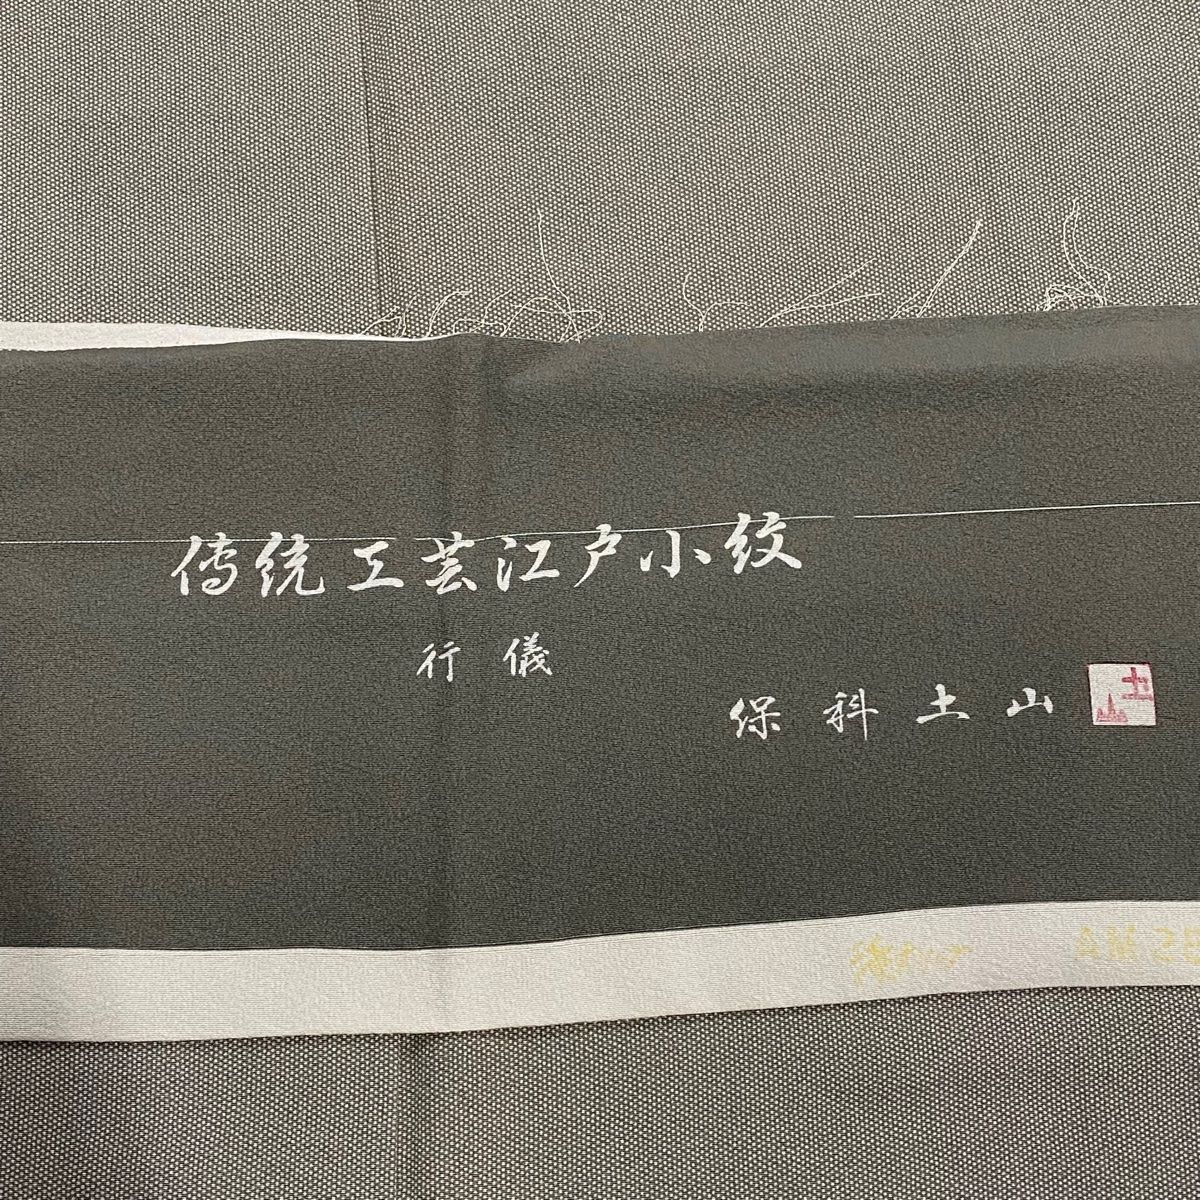 伝统工芸江戸小紋
行儀
保科土山
土山
AM25